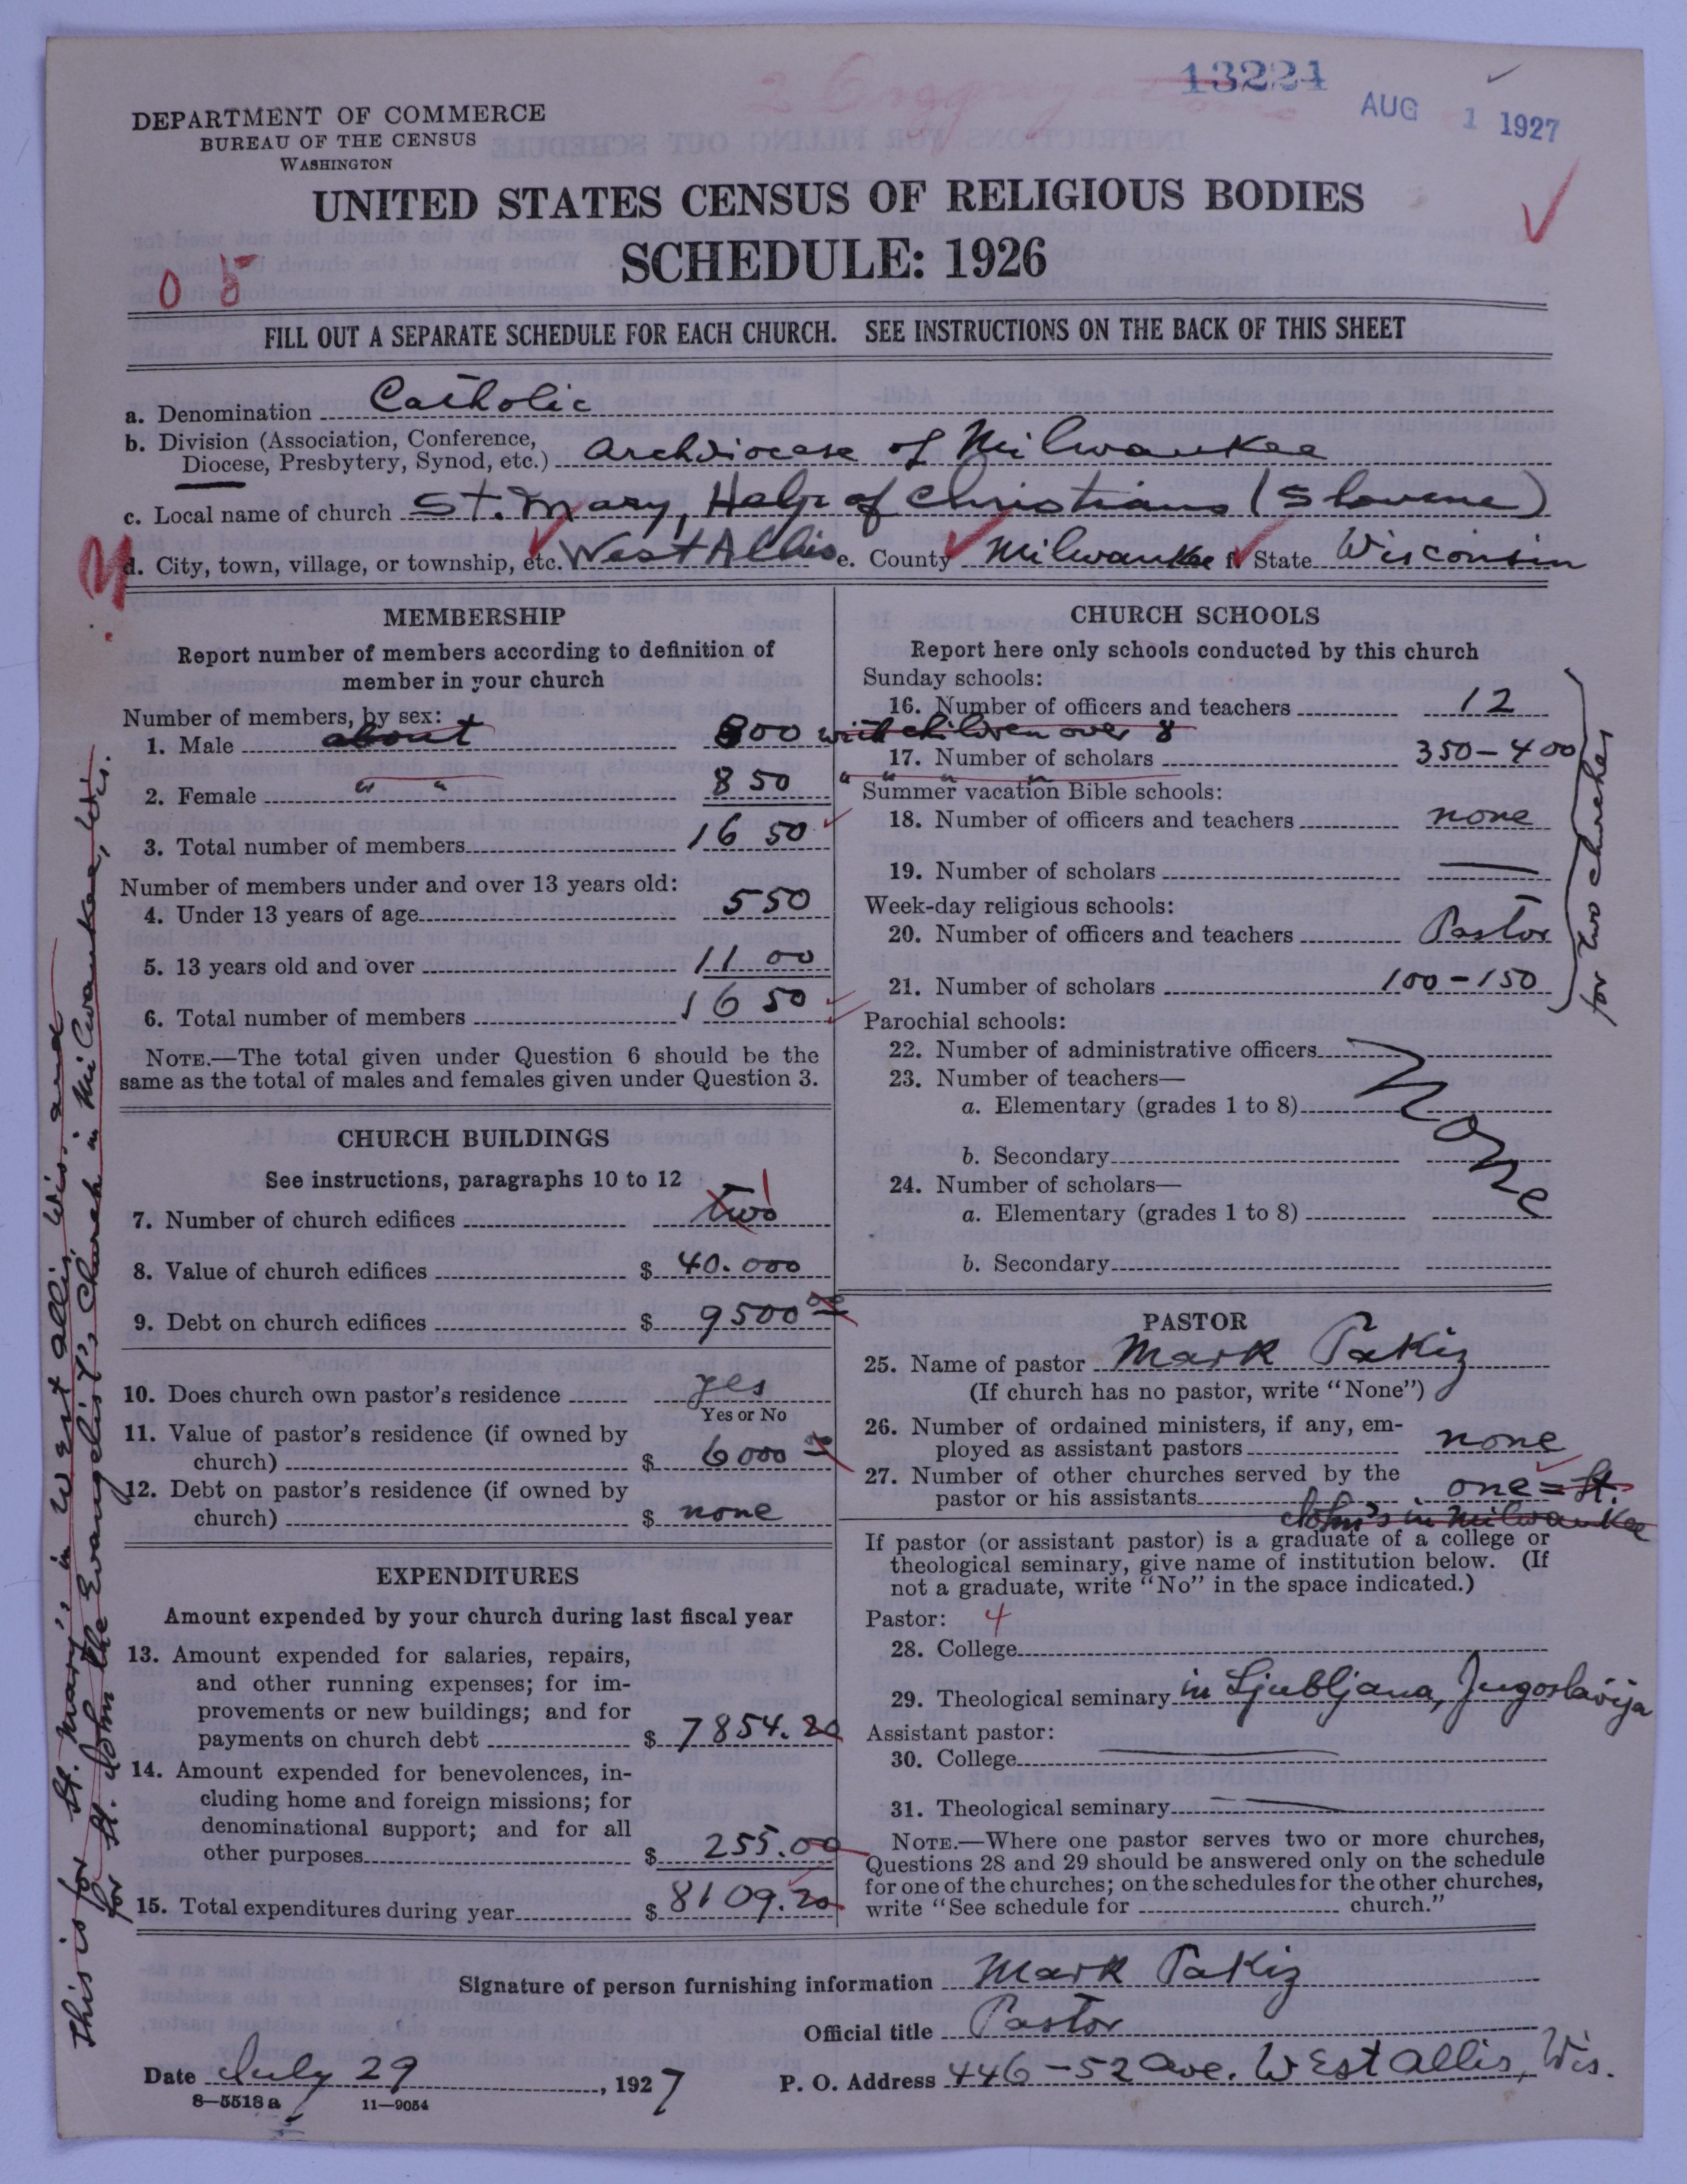 2 Congregations
13221
AUG 1 1927
DEPARTMENT OF COMMERCE
BUREAU OF THE CENSUS
WASHINGTON
UNITED STATES CENSUS OF RELIGIOUS BODIES
SCHEDULE: 1926
0 5
FILL OUT A SEPARATE SCHEDULE FOR EACH CHURCH. SEE INSTRUCTIONS ON THE BACK OF THIS SHEET
a. Denomination Catholic
b. Division (Association, Conference,
Diocese, Presbytery, Synod, etc.) Archdiocese of Milwaukee
c. Local name of church St. Mary, Help of Christians (Slovene)
d. City, town, village, or township, etc. West Allis e. County Milwaukee f. State Wisconsin
MEMBERSHIP
Report number of members according to definition of
member in your church
Number of members, by sex:
1. Male about 800 with children over 8
2. Female " " 850 " " " "
3. Total number of members 1650
Number of members under and over 13 years old:
4. Under 13 years of age 550
5. 13 years old and over 1100
6. Total number of members 1650
NOTE.—The total given under Question 6 should be the
same as the total of males and females given under Question 3.
CHURCH BUILDINGS
See instructions, paragraphs 10 to 12
7. Number of church edifices two 1
8. Value of church edifices $ 40.000
9. Debt on church edifices $ 9500 00
10. Does church own pastor's residence yes
Yes or No
11. Value of pastor's residence (if owned by
church) $ 6000 00
12. Debt on pastor's residence (if owned by
church) $ none
EXPENDITURES
Amount expended by your church during last fiscal year
13. Amount expended for salaries, repairs,
and other running expenses; for im-
provements or new buildings; and for
payments on church debt $ 7854.20
14. Amount expended for benevolences, in-
cluding home and foreign missions; for
denominational support; and for all
other purposes $ 255.00
15. Total expenditures during year $ 8109.20
CHURCH SCHOOLS
Report here only schools conducted by this church
Sunday schools:
16. Number of officers and teachers 12
17. Number of scholars 350-400
Summer vacation Bible schools:
18. Number of officers and teachers none
19. Number of scholars —
Week-day religious schools:
20. Number of officers and teachers Pastor
21. Number of scholars 100-150
for two churches
Parochial schools:
22. Number of administrative officers
23. Number of teachers—
a. Elementary (grades 1 to 8)
None
b. Secondary
24. Number of scholars—
a. Elementary (grades 1 to 8)
b. Secondary
PASTOR
25. Name of pastor Mark Pakiz
(If church has no pastor, write "None")
26. Number of ordained ministers, if any, em-
ployed as assistant pastors none
27. Number of other churches served by the
pastor or his assistants one = St.
John's in Milwaukee
If pastor (or assistant pastor) is a graduate of a college or
theological seminary, give name of institution below. (If
not a graduate, write "No" in the space indicated.)
Pastor: 4
28. College
29. Theological seminary in Ljubljana, Jugoslavija
Assistant pastor:
30. College —
31. Theological seminary —
NOTE.—Where one pastor serves two or more churches,
Questions 28 and 29 should be answered only on the schedule
for one of the churches; on the schedules for the other churches,
write "See schedule for church."
Signature of person furnishing information Mark Pakiz
Official title Pastor
Date July 29, 1927 P. O. Address 446-52 Ave. West Allis, Wis.
8—5518a 11—9054
This is for St. Mary's in West Allis, Wis. and
for St. John the Evangelist's Church in Milwaukee, Wis.